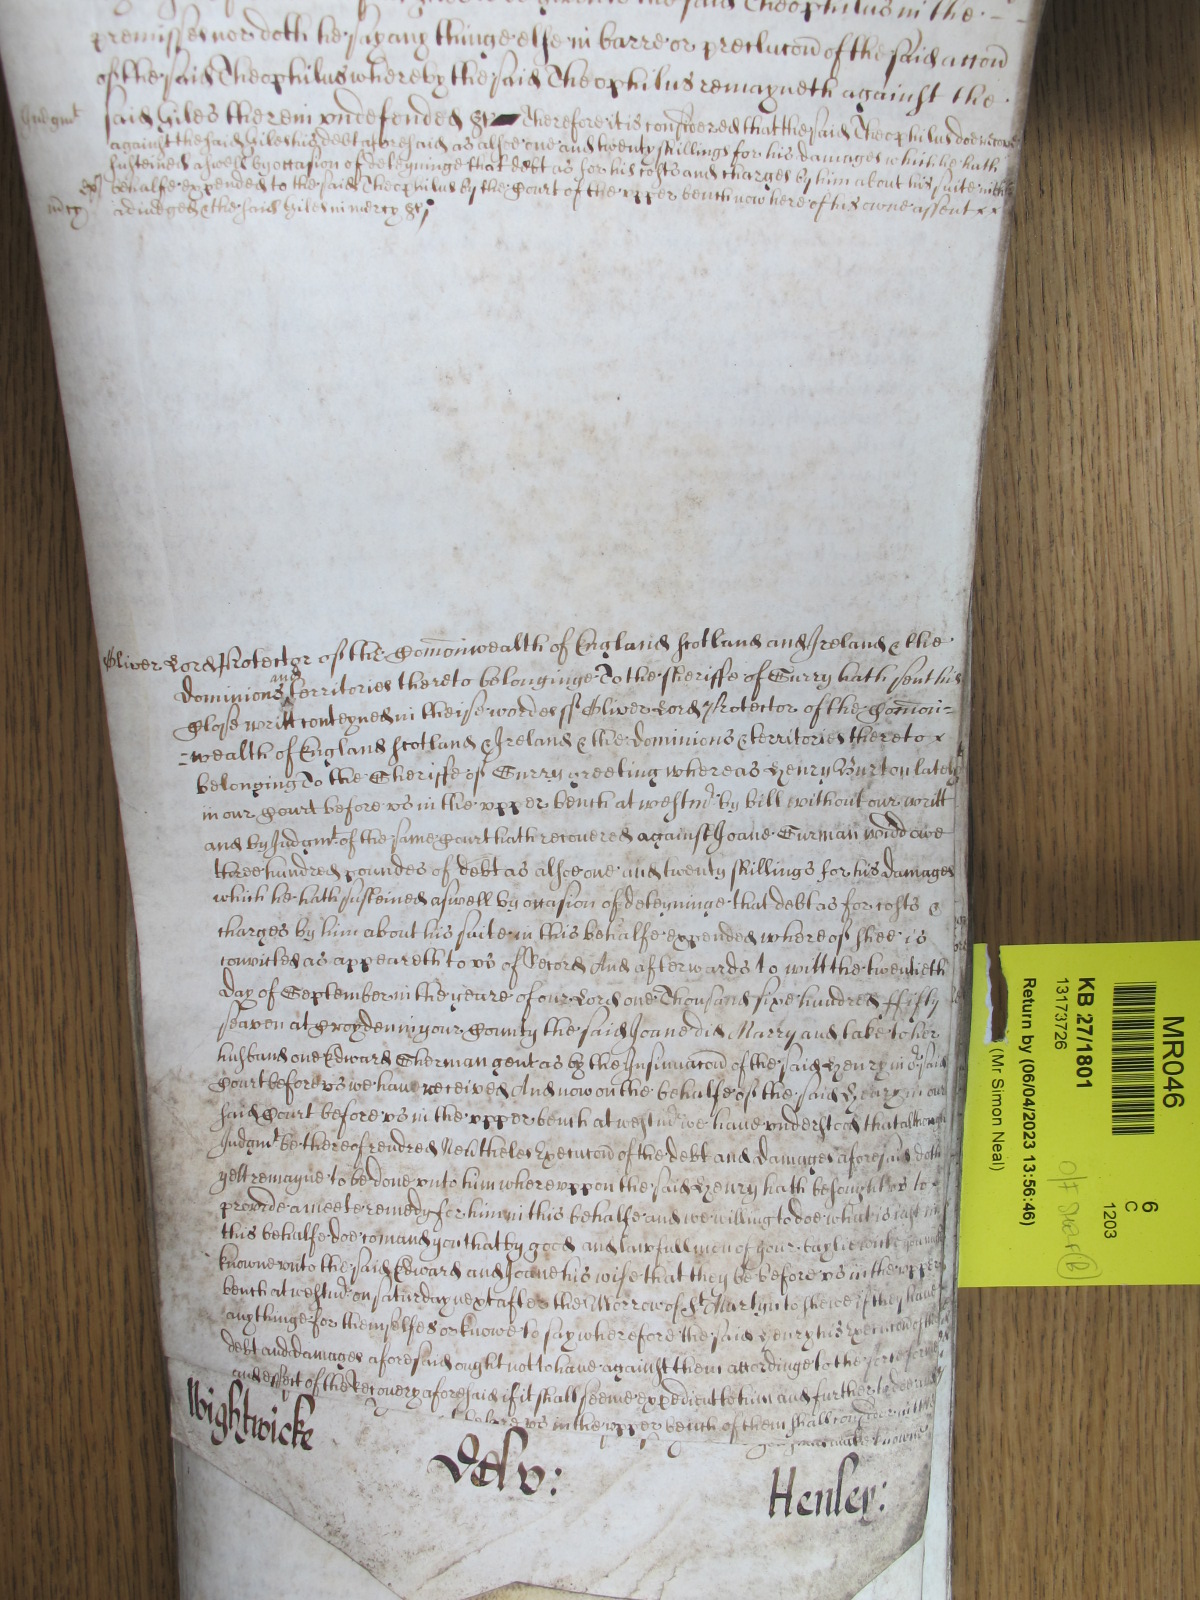 said Theophilus in the
premisses nor doth he say any thinge else in barre or preclucon of the said accon
of the said Theophilus whereby the said Theophilus remayneth against the
Judgmt
said Giles therein undefended &c Therefore it is considered that the said Theophilus doe recover
against the said Giles his debt aforesaid as alsoe one and twenty shillings for his damages which he hath
susteined aswell by occasion of deteyninge that debt as for his costs and charges by him about his suite in this
behalfe expended to the said Theophilus by the Court of the upper bench now here of his owne assent
mercy
adiudged & the said Giles in mercy &c
Oliver Lord Protector of the Comonwealth of England Scotland and Ireland & the
Dominions and territories thereto belonginge To the sheriffe of Surry hath sent his
Close writt conteyned in theise wordes ss Oliver Lord Protector of the Comon=
=wealth of England Scotland & Ireland & the Dominions & territories thereto
belonging To the Sheriffe of Surry greeting whereas Henry Burton lately
in our Court before us in the upper bench at westmr by bill without our writt
and by Judgmt of the same Court hath recovered against Joane Surman widdowe
three hundred poundes of debt as alsoe one and twenty shillings for his damages
which he hath susteined aswell by occasion of deteyninge that debt as for costs &
charges by him about his suite in this behalfe expended whereof shee is
convicted as appeareth to us of Record And afterwards to witt the twentieth
day of September in the yeare of our Lord one Thousand sixe hundred ffifty
seaven at Croyden in your County the said Joane did Marry and take to her
husband one Edward Sherman gent as by the Insinuacon of the said Henry in or said
Court before us we have received And now on the behalfe of the said Henry in our
said Court before us in the upper bench at westmr we have understood that although
Judgmt be thereof rendred Nevtheles Execucon of the debt and damages aforesaid doth
yett remayne to be done unto him whereuppon the said Henry hath besought us to
provide a meete remedy for him in this behalfe and we willing to doe what is just in
this behalfe doe comand you that by good and lawfull men of your baylewicke you make
knowne unto the said Edward and Joane his wife that they be before us in the upper
bench at westmr on saturday next after the Morrow of St Martyn to shewe if they have
any thinge for themselfes or knowe to say wherefore the said Henry his Execucon of the
debt and damages aforesaid ought not to have against them accordinge to the force forme
and effect of the Recovery aforesaid if it shall seeme expedient to him and further to doe
before us in the upper bench of them shall consider in this
make knowne
Wightwicke
Henley:
MR046
6
C
1203
KB 27/1801
13173726
Return by (06/04/2023 13:56:46)
(Mr Simon Neal)